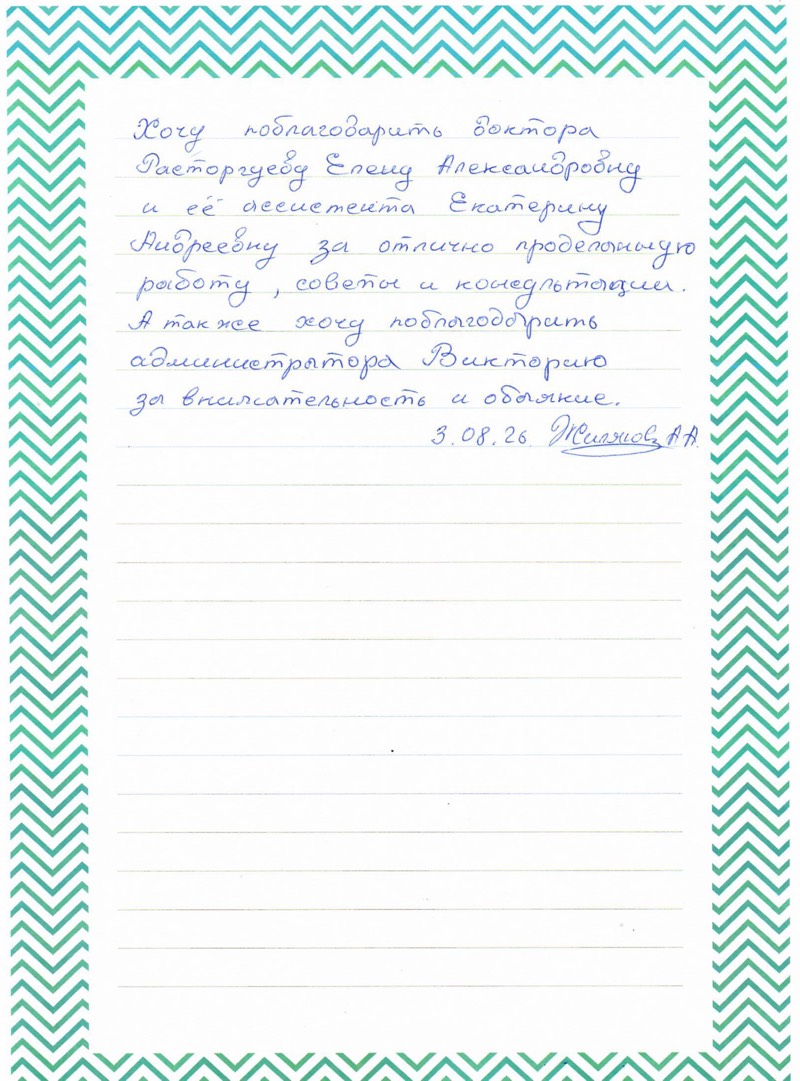 Хочу поблагодарить доктора
Расторгуеву Елену Александровну
и её ассистента Екатерину
Андреевну за отлично проделанную
работу, советы и консультации.
А также хочу поблагодарить
администратора Викторию
за внимательность и обаяние.
3.08.26 А А